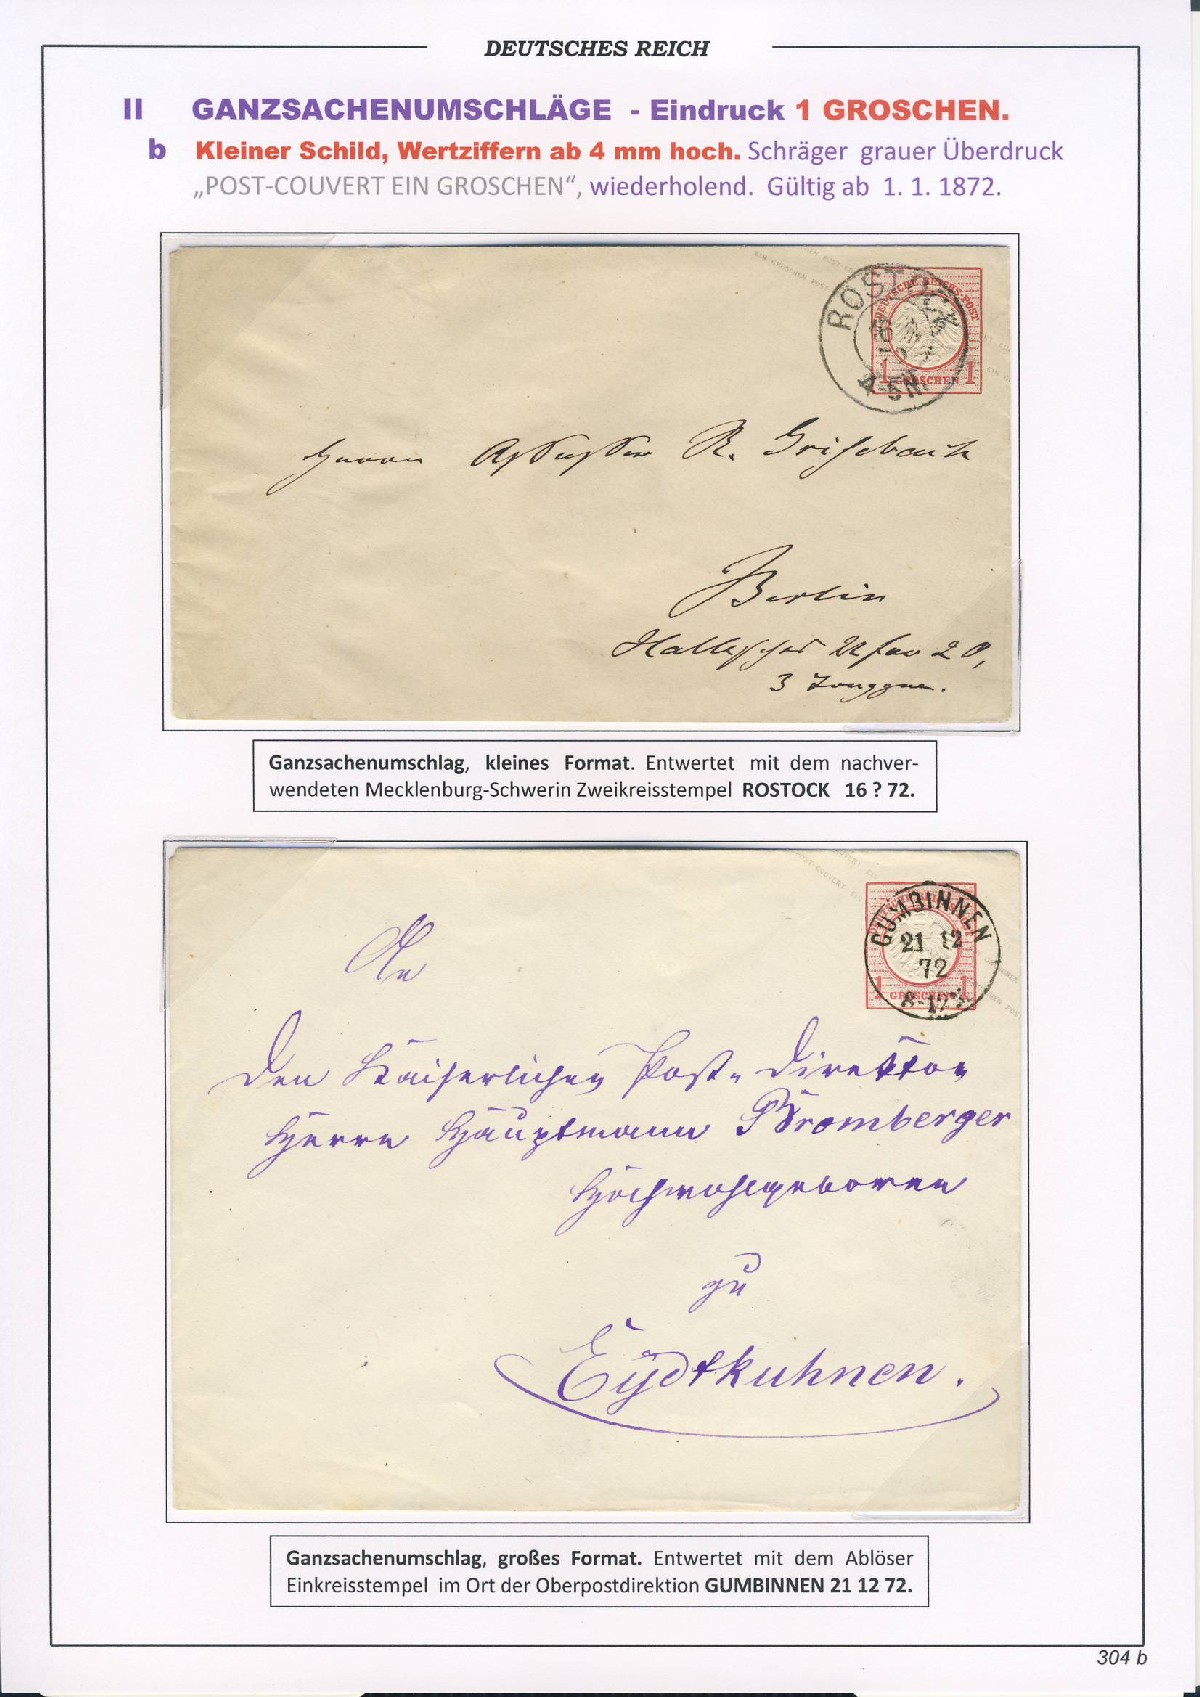 DEUTSCHES REICH
II GANZSACHENUMSCHLÄGE - Eindruck 1 GROSCHEN.
b Kleiner Schild, Wertziffern ab 4 mm hoch. Schräger grauer Überdruck
„POST-COUVERT EIN GROSCHEN“, wiederholend. Gültig ab 1. 1. 1872.
ROSTOCK
DEUTSCHE REICHS-POST
16
4-5N
1 GROSCHEN 1
Herrn Assessor R. Grisebach
Berlin
Hallesches Ufer 20,
3 Treppen.
Ganzsachenumschlag, kleines Format. Entwertet mit dem nachver-
wendeten Mecklenburg-Schwerin Zweikreisstempel ROSTOCK 16 ? 72.
GUMBINNEN
21 12
72
1 GROSCHEN 1
An
Den Kaiserlichen Post-Direktor
Herrn Hauptmann Bromberger
Hochwohlgeboren
zu
Eydtkuhnen.
Ganzsachenumschlag, großes Format. Entwertet mit dem Ablöser
Einkreisstempel im Ort der Oberpostdirektion GUMBINNEN 21 12 72.
304 b